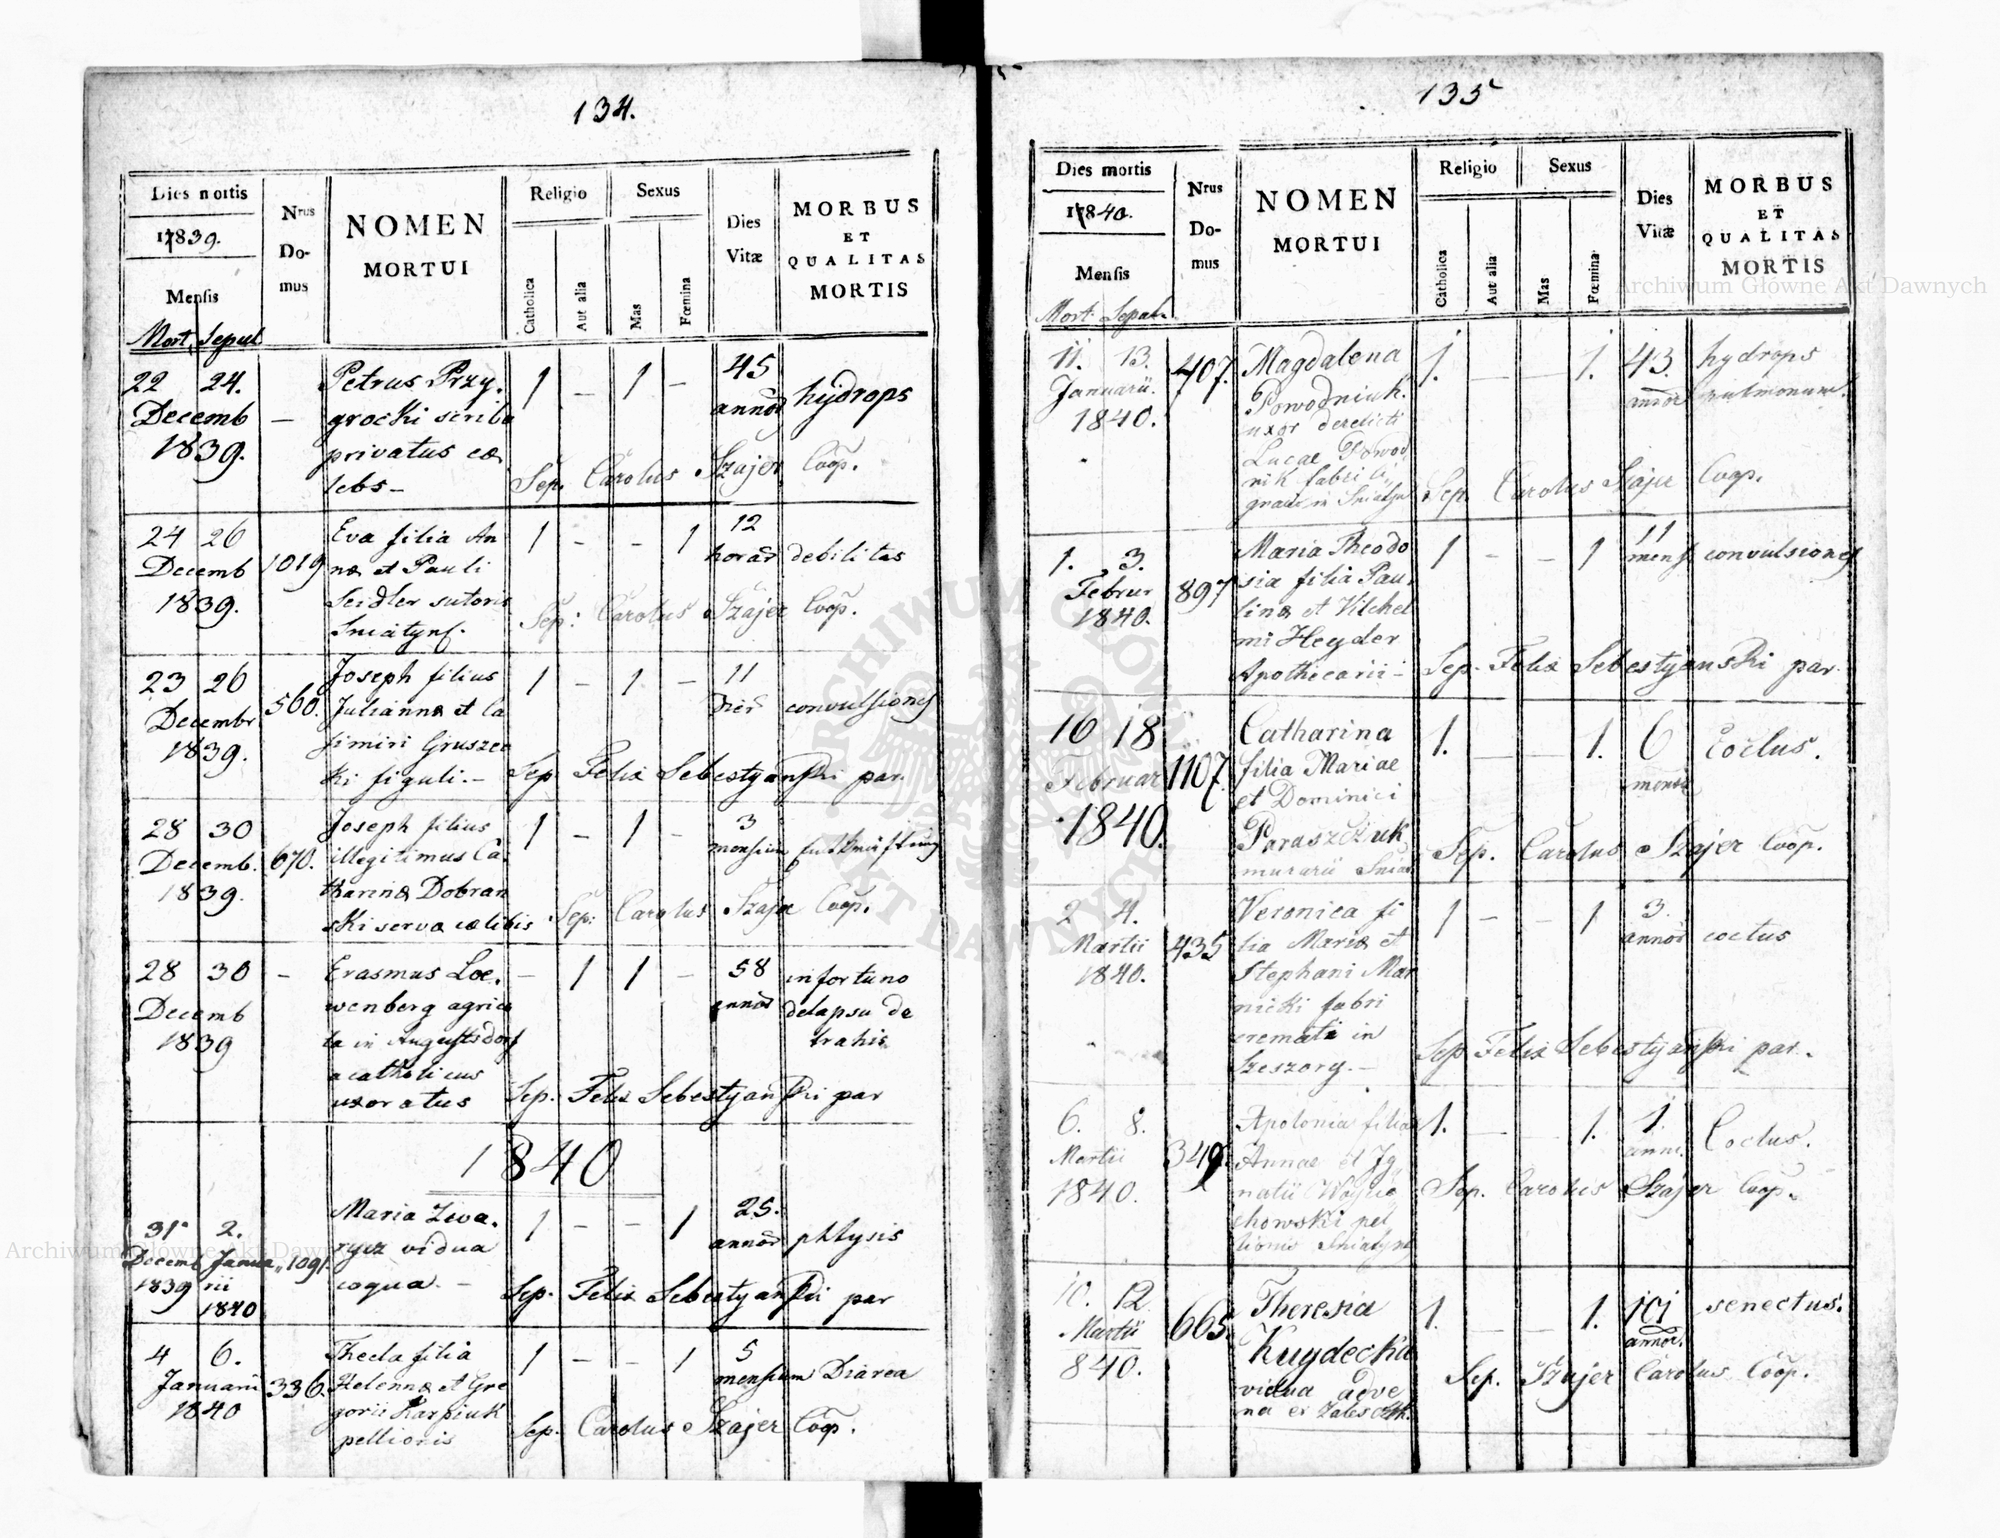 134.
Dies mortis
Nrus Domus
NOMEN MORTUI
Religio
Sexus
Dies Vitæ
MORBUS ET QUALITAS MORTIS
17839.
Mensis
Catholica
Aut alia
Mas
Fœmina
Mort. Sepul
22 24. Petrus Przy- 1 - 1 - 45
Decemb - grocki scriba annor hydrops
1839. privatus cæ
lebs - Sep. Carolus Szajer Coop.
24 26 Eva filia An 1 - - 1 12
Decemb 1019 næ et Pauli horar debilitas
1839. Seidler sutoris Sep: Carolus Szajer Coop.
Sniatyns.
23 26 Joseph filius 1 - 1 - 11
Decembr 560. Juliannæ et Ca dier convulsiones
1839. simiri Gruszec
ki figuli.- Sep. Felix Sebestyanski par.
28 30 Joseph filius 1 - 1 - 3
Decemb. 670. illegitimus Ca- mensium
1839. tharinæ Dobran
ski serva cælibis Sep: Carolus Szajer Coop.
28 30 - Erasmus Loe- - 1 1 - 58 infortuno
Decemb wenberg agrico annor delapsu de
1839 la in Augustsdorf trahis
acatholicus
uxoratus Sep. Felix Sebestyanski par
1840
31 2. Maria 1 - - 1 25.
Decemb Janua 1091. vidua annor phtysis
1839 rii coqua. - Sep. Felix Sebestyanski par
1840
4 6. Thecla filia 1 - - 1 5
Januarii 336. Helennæ et Gre mensium Diarea
1840 gorii Karpiuk
pellionis Sep. Carolus Szajer Coop.
135
Dies mortis
Nrus Domus
NOMEN MORTUI
Religio
Sexus
Dies Vitæ
MORBUS ET QUALITAS MORTIS
17840.
Mensis
Catholica
Aut alia
Mas
Fœmina
Mort. Sepul.
11. 13. 407. Magdalena 1. - - 1. 43. hydrops
Januarii. Powodniuk annor pulmonum.
1840. uxor derelicti
Lucae Powod
nik fabri li Sep. Carolus Szajer Coop.
gnarii in Sniatyn
1. 3. Maria Theodo 1 - - 1 11
Februr 897 sia filia Pau- mens convulsiones
1840. linæ et Vilhel
mi Heyder
Apothecarii - Sep. Felix Sebestyanski par.
16 18 Catharina 1. - - 1. 6 Coctus.
Februar 1107. filia Mariae mens
1840. et Dominici
Paraszczuk Sep. Carolus Szajer Coop.
murarii Sniat
2 4. Veronica fi 1 - - 1 3.
Martii 435 lia Mariæ et annor coctus
1840. Stephani Mar
nicki fabri
cremati in Sep Felix Sebestyanski par.
Szeszory.-
6. 8. Apolonia filia 1. - - 1. 1. Coctus.
Martii 349. Annae et Ig anni.
1840. natii Sep. Carolus Szajer Coop.
chowski pel
lionis Sniatyn
10. 12 665. Theresia 1. - - 1. 101 senectus.
Martii Kuydecka annor.
840. vidua adve Sep. Szajer Carolus Coop.
na ex Zaleszczyk.
Archiwum Główne Akt Dawnych
Archiwum Główne Akt Dawnych
ARCHIWUM GŁÓWNE AKT DAWNYCH